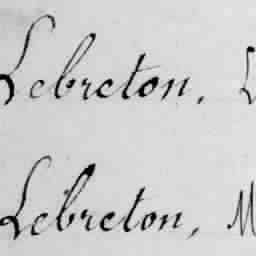 Lebreton, L
Lebreton, M